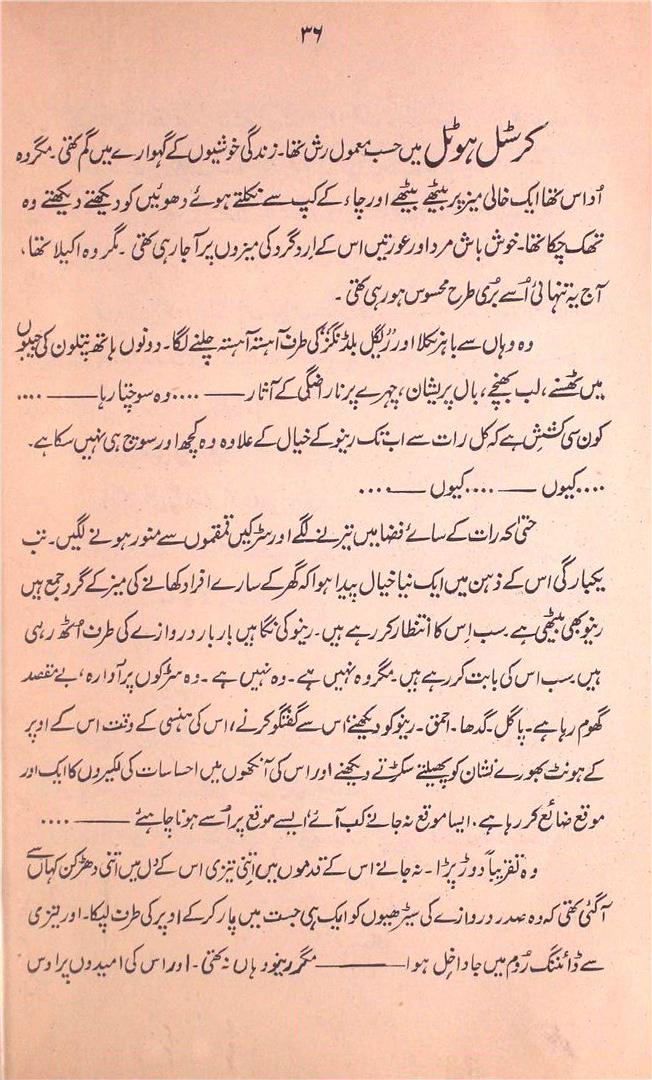 ۳۶
کرسٹل ہوٹل میں حسب معمول رش تھا۔ زندگی خوشیوں کے گہوارے میں گم تھی۔ مگر وہ
اُداس تھا ایک خالی میز پر بیٹھے بیٹھے اور چاء کے کپ سے نکلتے ہوئے دھوئیں کو دیکھتے دیکھتے وہ
تھک چکا تھا۔ خوش باش مرد اور عورتیں اس کے اِرد گرد کی میزوں پر آ جا رہی تھی۔ مگر وہ اکیلا تھا،
آج یہ تنہائی اُسے بُری طرح محسوس ہو رہی تھی۔
وہ وہاں سے باہر نکلا اور رُیگل بلڈنگز کی طرف آہستہ آہستہ چلنے لگا۔ دونوں ہاتھ پتلون کی جیبوں
میں ٹھسنے، لب بھنچے، بال پریشان، چہرے پر ناراضگی کے آثار —— .... وہ سوچتا رہا —— ....
کون سی کشش ہے کہ کل رات سے اب تک رینو کے خیال کے علاوہ وہ کچھ اور سوچ ہی نہیں سکا ہے۔
.... کیوں —— .... کیوں —— ....
حتیٰ کہ رات کے سائے فضا میں تیرنے لگے اور سڑکیں قمقموں سے منور ہونے لگیں۔ تب
یکبارگی اس کے ذہن میں ایک نیا خیال پیدا ہوا کہ گھر کے سارے افراد کھانے کی میز کے گرد جمع ہیں
رینو بھی بیٹھی ہے۔ سب اِس کا انتظار کر رہے ہیں۔ رینو کی نگاہیں بار بار دروازے کی طرف اُٹھ رہی
ہیں۔ سب اس کی بابت کر رہے ہیں۔ مگر وہ نہیں ہے۔ وہ نہیں ہے۔ وہ سڑکوں پر آوارہ، بے مقصد
گھوم رہا ہے۔ پاگل۔ گدھا۔ احمق۔ رینو کو دیکھنے، اس سے گفتگو کرنے، اس کی ہنسی کے وقت اس کے اوپر
کے ہونٹ بھورے نشان کو پھیلتے سکڑتے دیکھنے اور اس کی آنکھوں میں احساسات کی لکیروں کا ایک اور
موقع ضائع کر رہا ہے، ایسا موقع نہ جانے کب آئے، ایسے موقع پر اُسے ہونا چاہئے —— ....
وہ تقریباً دوڑ پڑا۔ نہ جانے اس کے قدموں میں اتنی تیزی اس کے دل میں اتنی دھڑکن کہاں سے
آ گئی تھی کہ وہ صدر دروازے کی سیڑھیوں کو ایک ہی جست میں پار کر کے اوپر کی طرف لپکا۔ اور تیزی
سے ڈائننگ رُوم میں جا داخل ہوا —— مگر رینو وہاں نہ تھی۔ اور اس کی امیدوں پر اوس